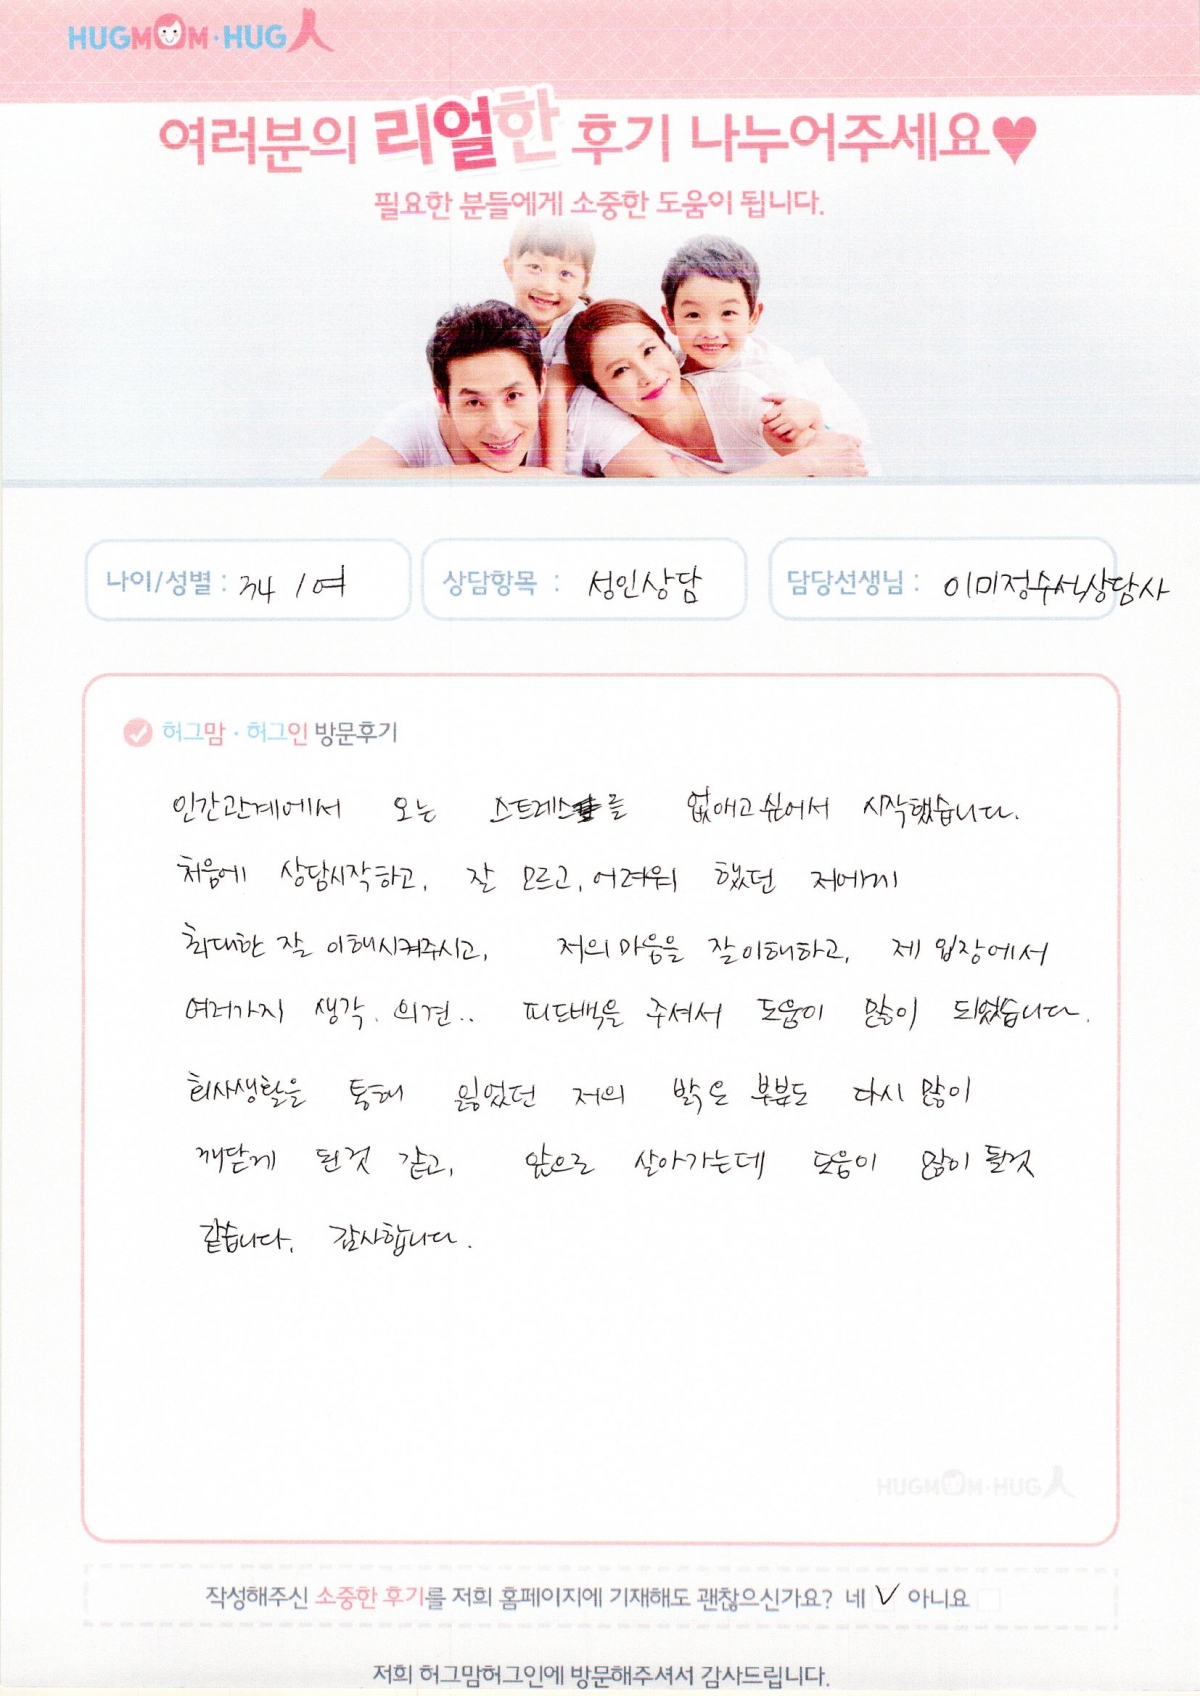 HUGMOM·HUG人
여러분의 리얼한 후기 나누어주세요♥
필요한 분들에게 소중한 도움이 됩니다.
나이/성별 : 34 / 여
상담항목 : 성인상담
담당선생님 : 이미정수석상담사
허그맘·허그인 방문후기
인간관계에서 오는 스트레스를 없애고싶어서 시작했습니다.
처음에 상담시작하고, 잘 모르고, 어려워 했던 저에게
최대한 잘 이해시켜주시고, 저의마음을 잘이해하고, 제 입장에서
여러가지 생각. 의견.. 피드백을 주셔서 도움이 많이 되었습니다.
회사생활을 통해 잃었던 저의 밝은 부분도 다시 많이
깨닫게 된것 같고, 앞으로 살아가는데 도움이 많이 될것
같습니다. 감사합니다.
HUGMOM·HUG人
작성해주신 소중한 후기를 저희 홈페이지에 기재해도 괜찮으신가요? 네 V 아니요
저희 허그맘허그인에 방문해주셔서 감사드립니다.